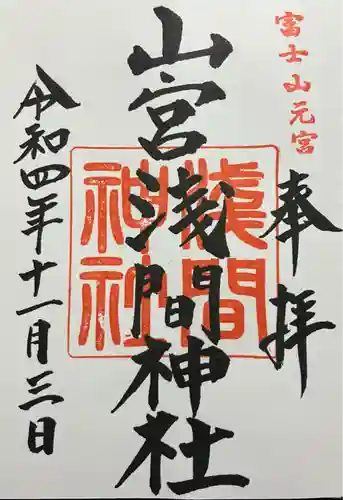 富士山元宮
奉拝
山宮浅間神社
浅間神社
令和四年十一月三日